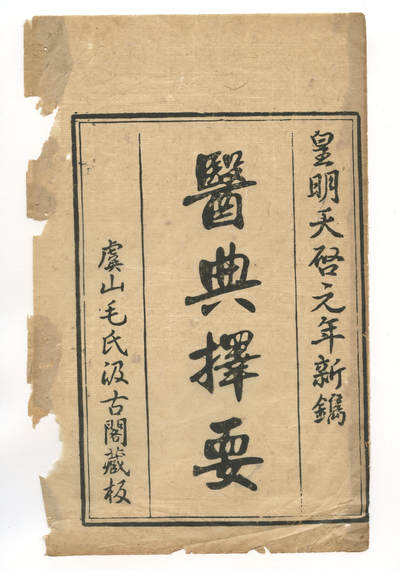 皇明天啓元年新鐫
醫典擇要
虞山毛氏汲古閣藏板